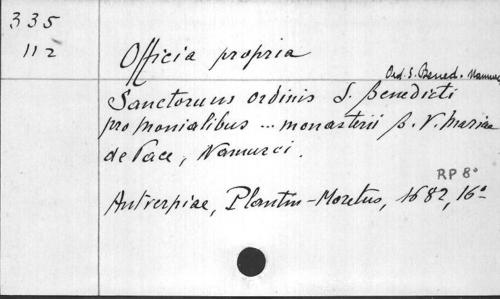 335
112
Officia propria
Ord. S. Bened. Namurc
Sanctorum ordinis S. Benedicti
pro monialibus ... monasterii B. V. Mariae
de Pace, Namurci.
RP 8°
Antverpiae, Plantin-Moretus, 1682, 16°